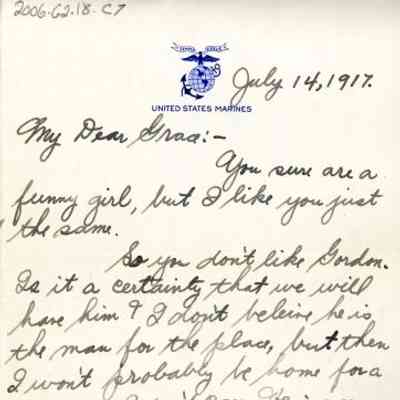 2006.62.18.C7
SEMPER FIDELIS
July 14, 1917.
UNITED STATES MARINES
My Dear Grace:-
You sure are a
funny girl, but I like you just
the same.
So you don't like Gordon.
Is it a certainty that we will
have him? I don't beleive he is
the man for the place, but then
I won't probably be home for a